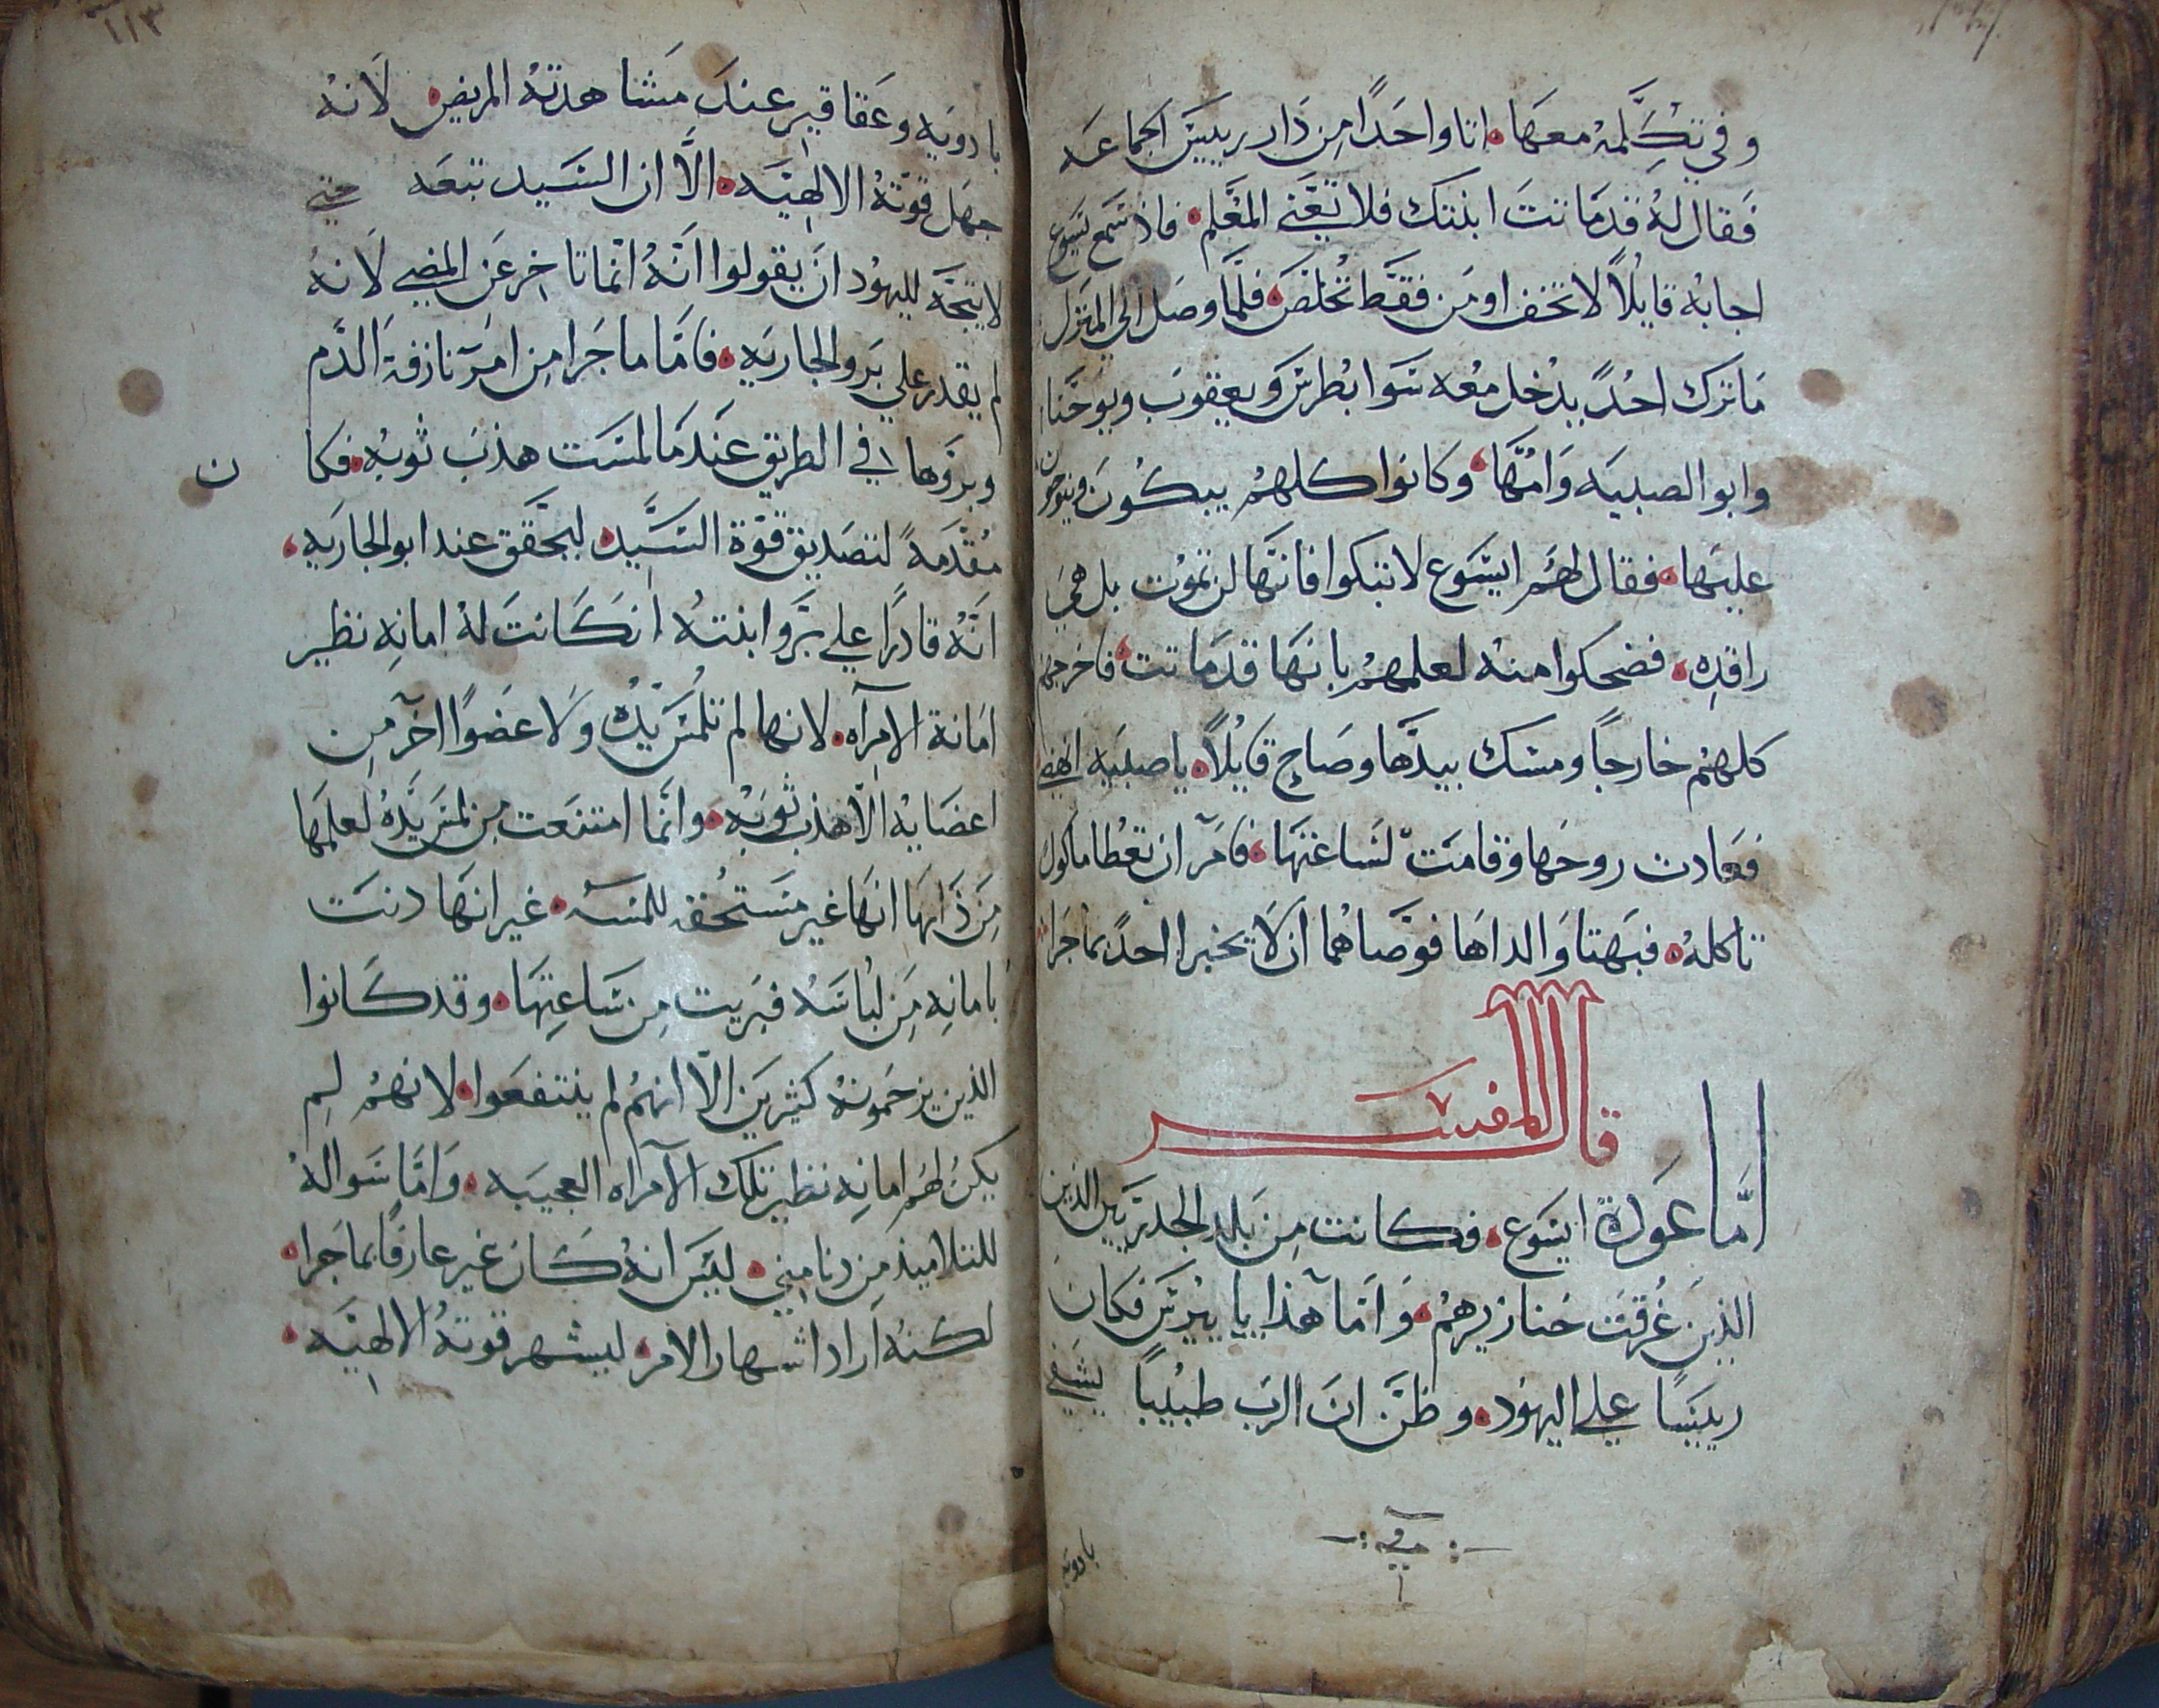 وفي تكلمه معها اتا واحدا من دار ريس الجماعه
فقال له قد ماتت ابنتك فلا تعني المعلم فاذ سمع يسوع
اجابه قايلا لا تخف اومن فقط تخلص فلما وصل الي المنزل
ما ترك احد يدخل معه سوا بطرس ويعقوب ويوحنا
وابو الصبيه وامها وكانوا كلهم يبكون وينوحون
عليها فقال لهم ايسوع لا تبكوا فانها لن تموت بل هي
راقده فضحكوا منه لعلمهم بانها قد ماتت فاخرجهم
كلهم خارجا ومسك بيدها وصاح قايلا يا صبيه انهضي
فعادت روحها وقامت لساعتها فامر ان تعطا ماكول
تاكله فبهتا والداها فوصاهما ان لا يخبرا احد بما جرا
قال المفسر
اما عودة ايسوع فكانت من بلد الجدريين الذين
الذين غرقت خنازيرهم واما هذا يايرس فكان
ريسا علي اليهود وظن ان الرب طبيبا يشفي
بادويه
١١٣
بادويه وعقاقير عند مشاهدته المريض لانه
جهل قوته الالهيه الا ان السيد تبعه حتي
لا يتجه لليهود ان يقولوا انه انما تاخر عن المضي لانه
لم يقدر علي برو الجاريه فاما ما جرا من امر نازفة الدم
وبروها في الطريق عندما لمست هذب ثوبه فكا
ن
مقدمة لتصديق قوة السيد ليحقق عند ابو الجاريه
انه قادرا علي برو ابنته ان كانت له امانه نظير
امانة الامراه لانها لم تلمس يده ولا عضوا اخر من
اعضايه الا هذب ثوبه وانما امتنعت من لمس يده لعلمها
من ذاتها انها غير مستحقه للمسه غير انها دنت
بامانه من لباسه فبريت من ساعتها وقد كانوا
الذين يزحمونه كثيرين الا انهم لم ينتفعوا لانهم لم
يكن لهم امانه نظير تلك الامراه العجيبه واما سواله
للتلاميذ من دنا مني ليس انه كان غير عارفا بما جرا
لكنه اراد اشهار الامر ليشهر قوته الالهيه